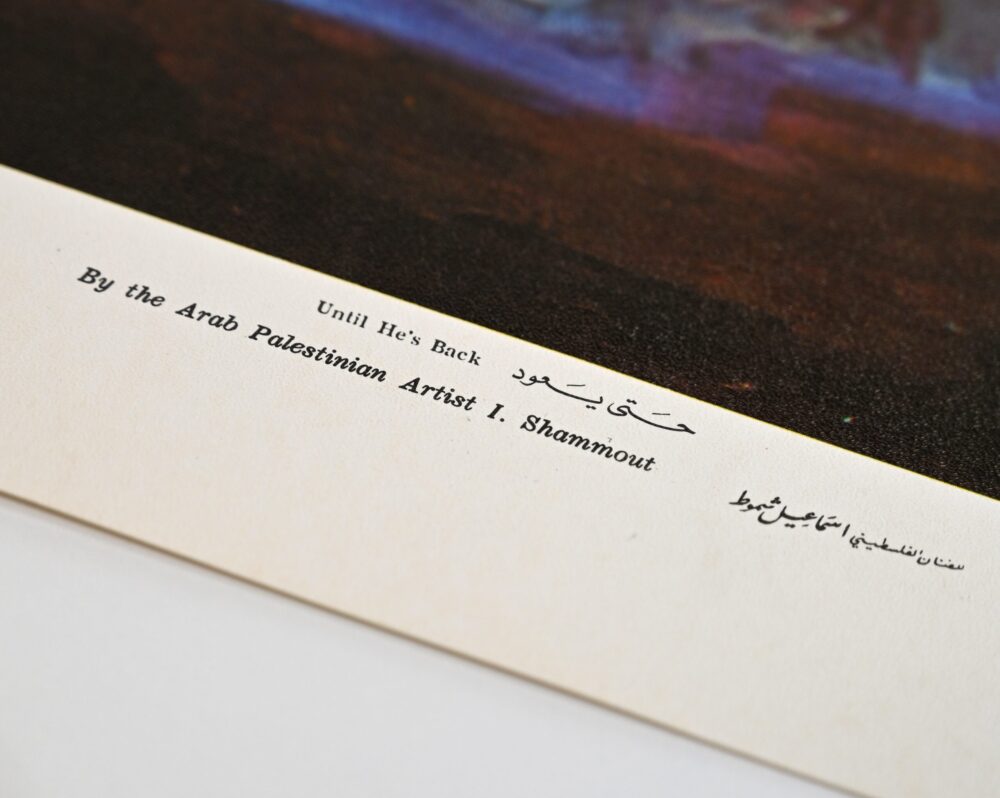 Until He's Back حَتى يَعود
By the Arab Palestinian Artist I. Shammout
للفنان الفلسطيني اسماعيل شموط